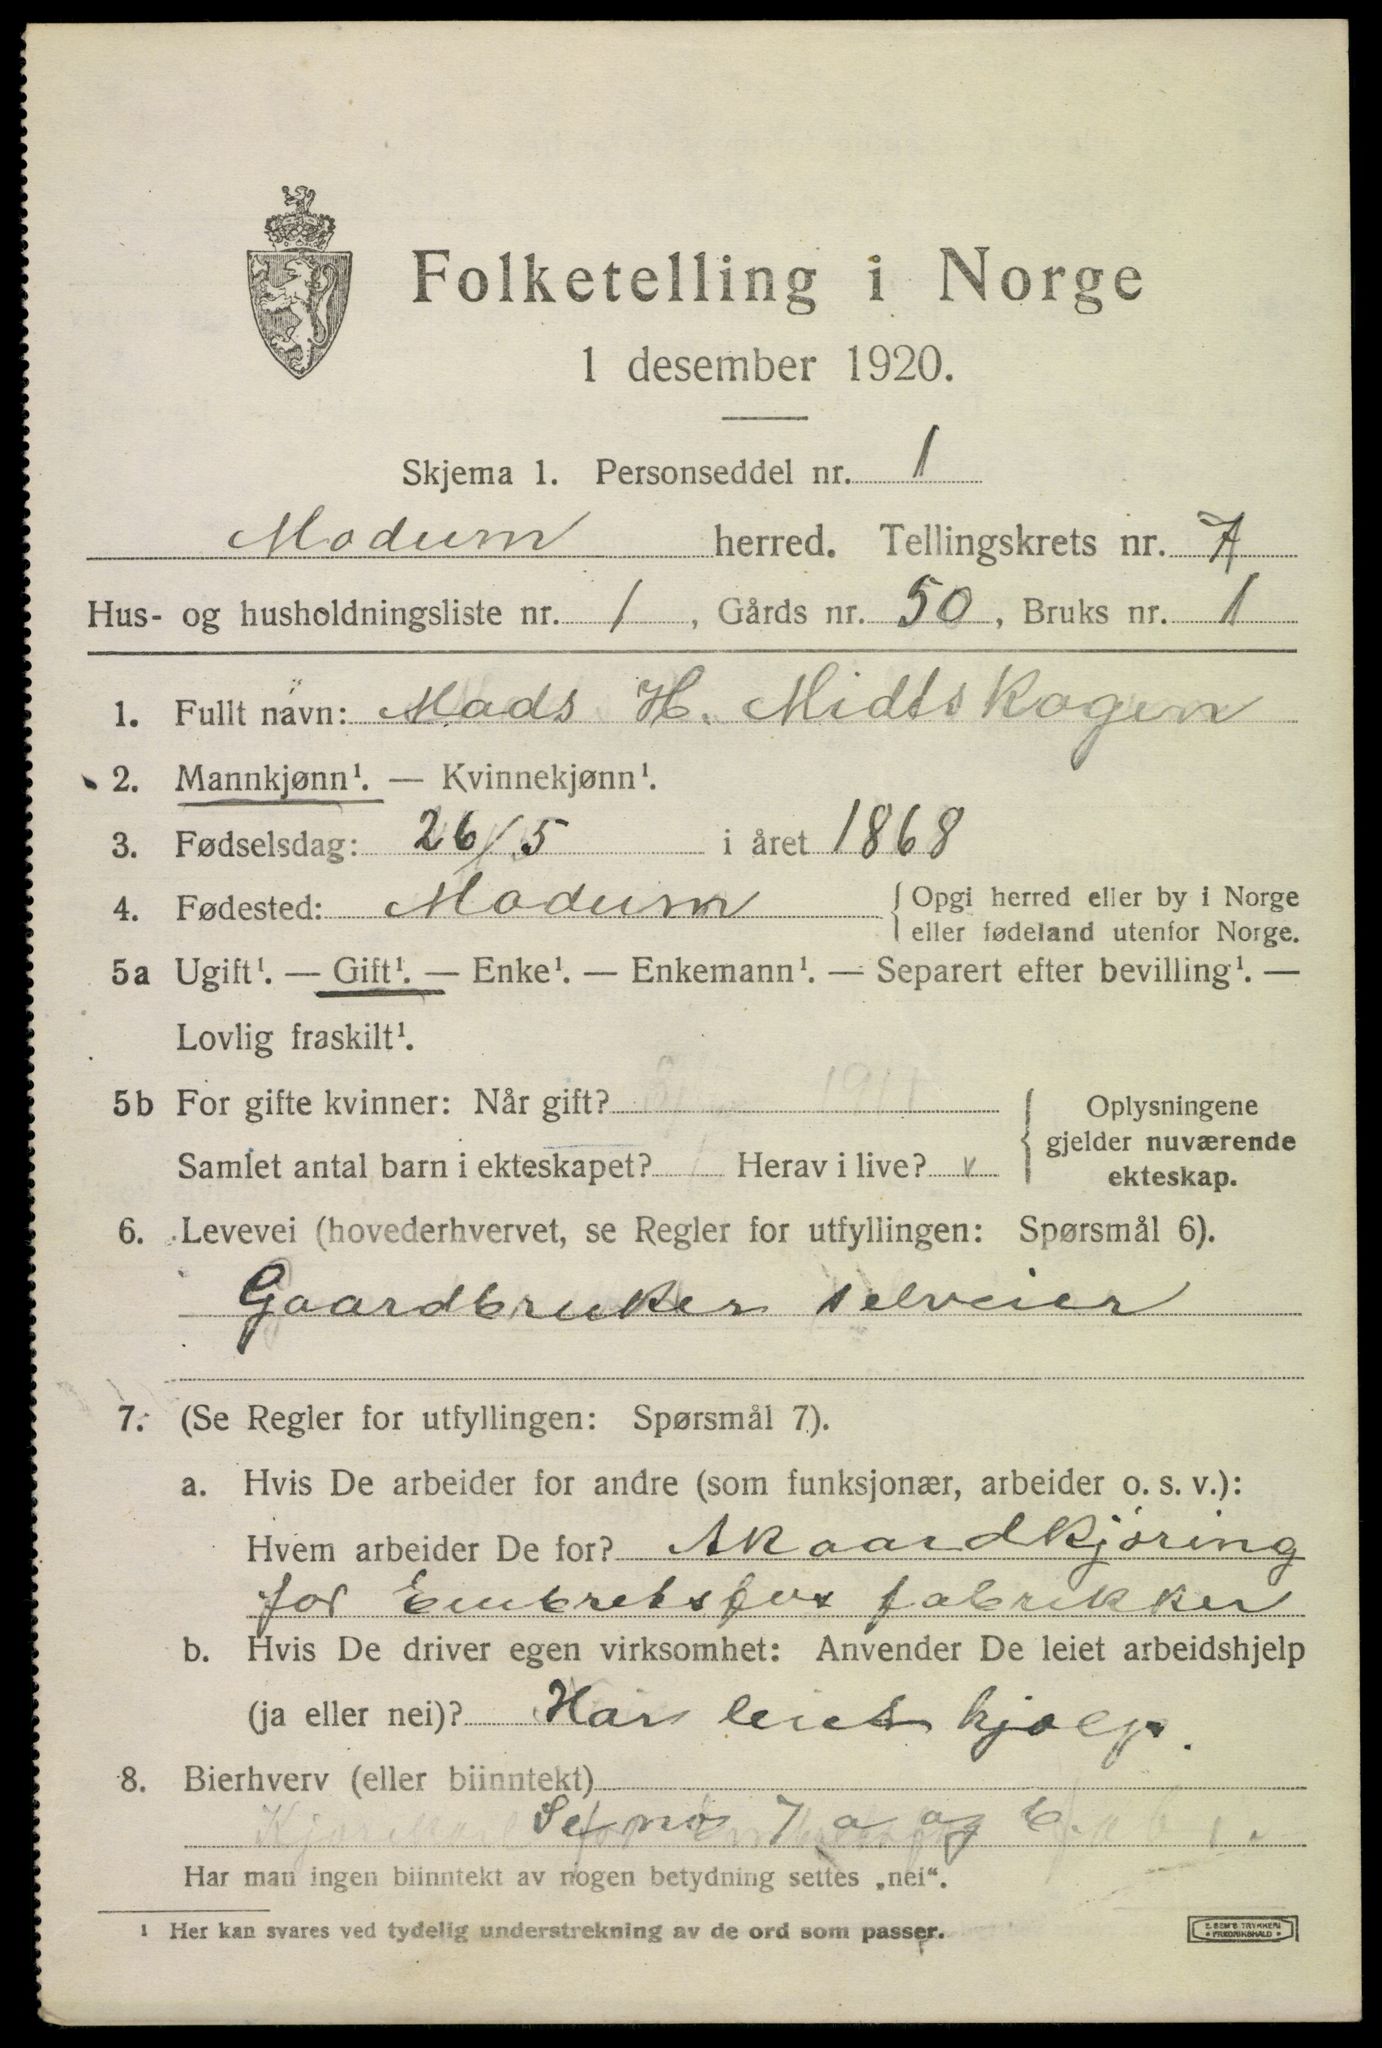 Folketelling i Norge
1 desember 1920.
Skjema 1. Personseddel nr. 1
Modum herred. Tellingskrets nr. 7
Hus- og husholdningsliste nr. 1, Gårds nr. 50, Bruks nr. 1
1. Fullt navn: Mads H. Midtskogen
2. Mannkjønn¹. — Kvinnekjønn¹.
3. Fødselsdag: 26/5 i året 1868
4. Fødested: Modum { Opgi herred eller by i Norge
eller fødeland utenfor Norge.
5a Ugift¹. — Gift¹. — Enke¹. — Enkemann¹. — Separert efter bevilling¹. —
Lovlig fraskilt¹.
5b For gifte kvinner: Når gift? 1911
Samlet antal barn i ekteskapet? Herav i live? v
{ Oplysningene
gjelder nuværende
ekteskap.
6. Levevei (hovederhvervet, se Regler for utfyllingen: Spørsmål 6).
Gaardbruker selveier
7. (Se Regler for utfyllingen: Spørsmål 7).
a. Hvis De arbeider for andre (som funksjonær, arbeider o. s. v.):
Hvem arbeider De for? Akaardkjöring
for Embretsfos fabrikker
b. Hvis De driver egen virksomhet: Anvender De leiet arbeidshjelp
(ja eller nei)? Har leiet hjælp.
8. Bierhverv (eller biinntekt)
Se no 7 a og b.
Har man ingen biinntekt av nogen betydning settes „nei“.
¹ Her kan svares ved tydelig understrekning av de ord som passer.
E. SEM'S TRYKKERI
FREDRIKSHALD